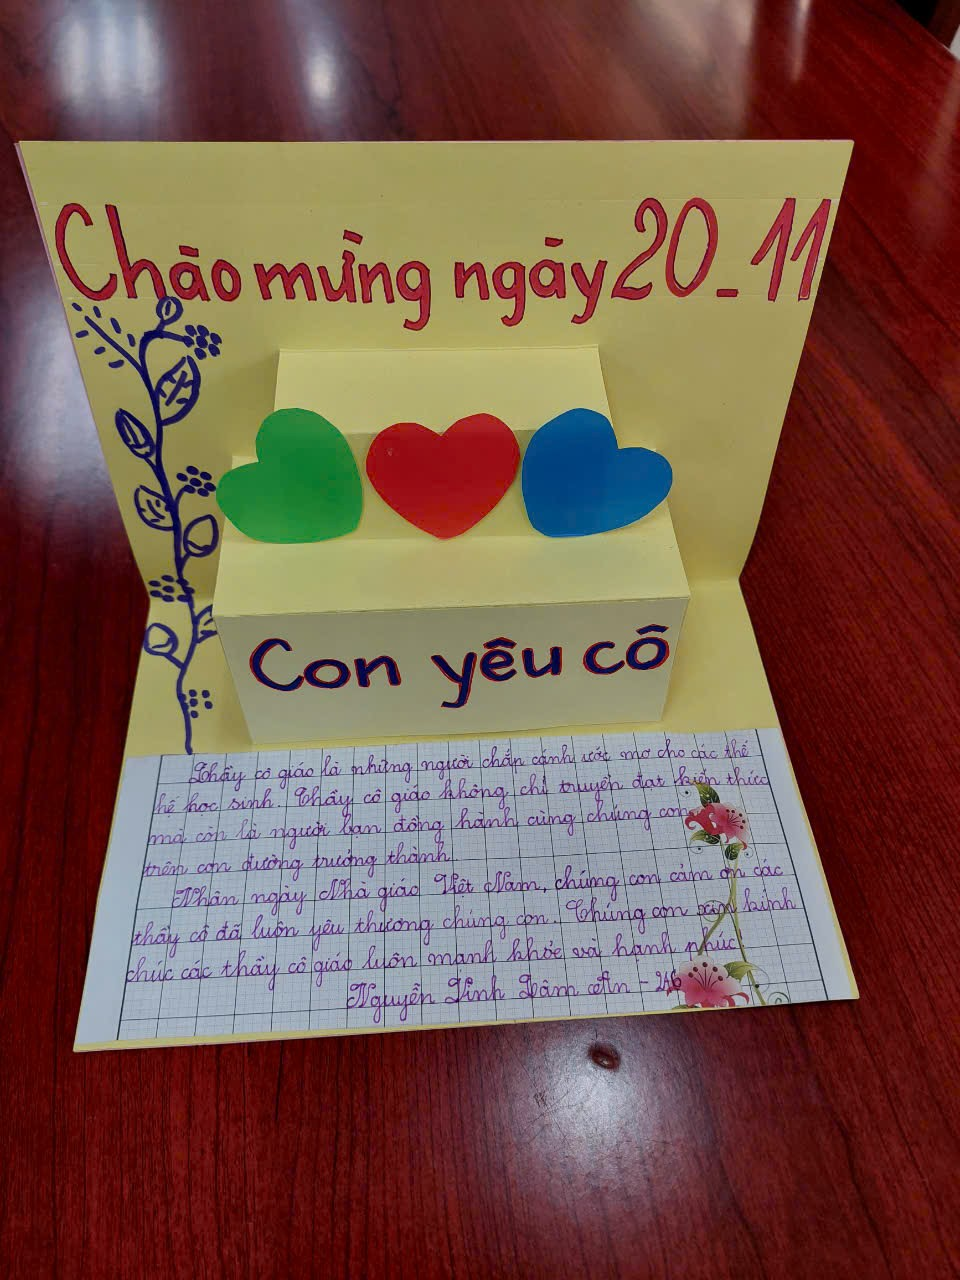 Chào mừng ngày 20_11
Con yêu cô
Thầy cô giáo là những người chắp cánh ước mơ cho các thế
hệ học sinh. Thầy cô giáo không chỉ truyền đạt kiến thức
mà còn là người bạn đồng hành cùng chúng con
trên con đường trưởng thành.
Nhân ngày Nhà giáo Việt Nam, chúng con cảm ơn các
thầy cô đã luôn yêu thương chúng con. Chúng con xin kính
chúc các thầy cô giáo luôn mạnh khỏe và hạnh phúc.
Nguyễn Linh Lâm An -